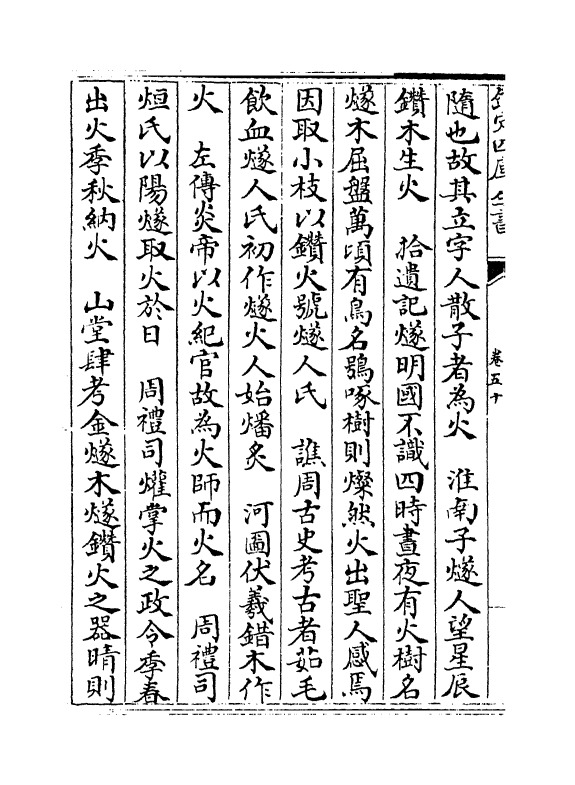 欽定四庫全書
卷五十
隨也故其立字人散子者為火　淮南子燧人望星辰
鑽木生火　拾遺記燧明國不識四時晝夜有火樹名
燧木屈盤萬頃有鳥名鶚啄樹則燦然火出聖人感焉
因取小枝以鑽火號燧人氏　譙周古史考古者茹毛
飲血燧人氏初作燧火人始燔炙　河圖伏羲錯木作
火　左傳炎帝以火紀官故為火師而火名　周禮司
烜氏以陽燧取火於日　周禮司爟掌火之政令季春
出火季秋納火　山堂肆考金燧木燧鑽火之器晴則